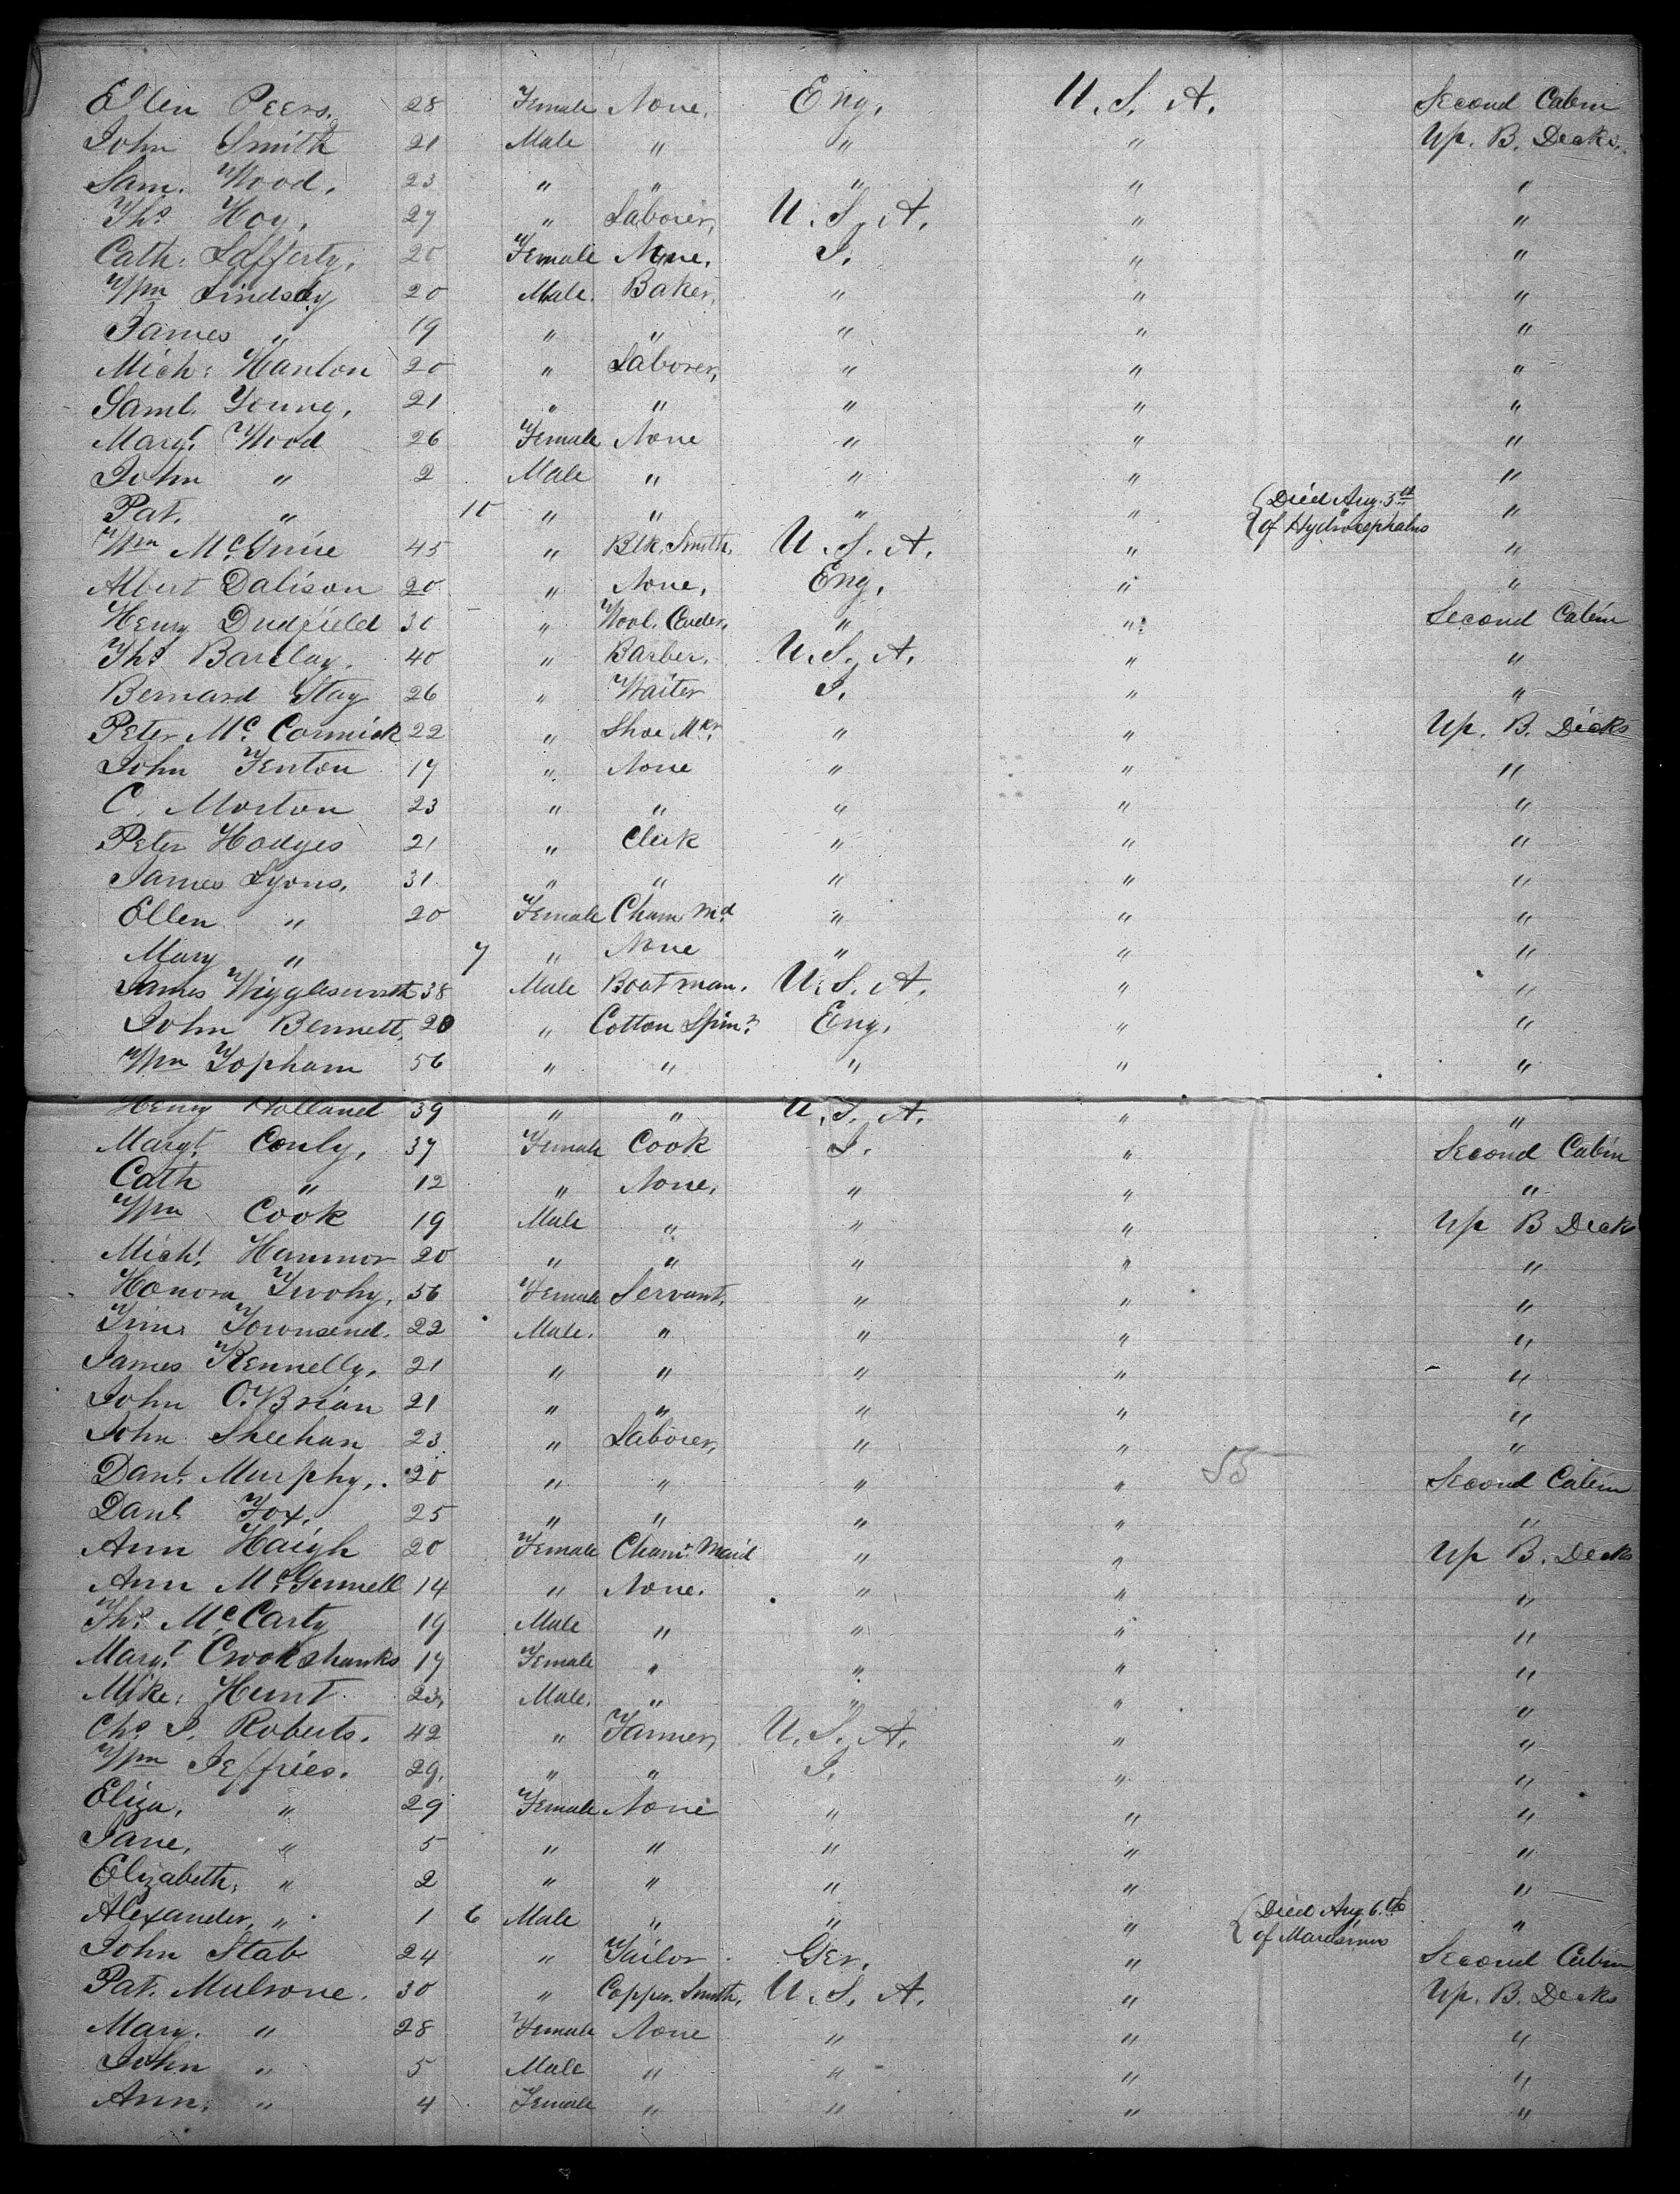 Ellen Peers. 28 Female None. Eng. U. S. A. Second Cabin
John Smith 21 Male " " " Up. B. Decks.
Sam. Wood. 23 " " " " "
Thos Hoy. 27 " Laborer, U. S. A. " "
Cath: Lafferty. 20 Female None. I. " "
Wm Lindsay 20 Male. Baker, " " "
James " 19 " " " " "
Mich: Hanlon 20 " Laborer, " " "
Saml. Young. 21 " " " " "
Margt. Wood 26 Female None " " "
John " 2 Male " " " "
Pat. " 10 " " " " { Died Aug. 5th "
{ of Hydrocephalus
Wm McGuire 45 " Blk. Smith, U. S. A. " "
Albert Dalison 20 " None, Eng. " "
Henry Dudfield 30 " Wool. Carder, " " Second Cabin
Thos Barclay. 40 " Barber. U. S. A. " "
Bernard Stay 26 " Waiter I. " "
Peter Mc. Cormick 22 " Shoe Mkr. " " Up. B. Decks
John Fenton 17 " None " " "
C. Morton 23 " " " " "
Peter Hodges 21 " Clerk " " "
James Lyons. 31 " " " " "
Ellen " 20 Female Cham. Md " " "
Mary " 7 " None " " "
James Wigglesworth 38 Male Boatman. U. S. A. " "
John Bennett, 20 " Cotton Spinr. Eng. " "
Wm Topham 56 " " " " "
Henry Holland 39 " " U. S. A. " "
Margt. Conly, 37 Female Cook I. " Second Cabin
Cath " 12 " None, " " "
Wm Cook 19 Male " " " Up B Decks
Michl. 20 " " " " "
Honora Twohy, 56 Female Servant, " " "
Townsend. 22 Male. " " " "
James Kennelly. 21 " " " " "
John O'Brian 21 " " " " "
John Sheehan 23 " Laborer, " " "
Danl. Murphy. 20 " " " " 55 Second Cabin
Danl. Fox. 25 " " " " "
Ann Haigh 20 Female Cham. Maid " " Up B. Decks
Ann 14 " None. " " "
Thos McCarty 19 Male " " " "
Margt. Crookshanks 17 Female " " " "
Mike: Hunt 23, Male. " " " "
Chs J. Roberts. 42 " Farmer, U. S. A. " "
Wm Jeffries. 29. " " I. " "
Eliza, " 29 Female None " " "
Jane, " 5 " " " " "
Elizabeth, " 2 " " " " "
Alexander, " 1 6 Male " " " { Died Aug 6.th "
{ of Marasmus
John Stab 24 " Tailor Ger. " Second Cabin
Pat. Mulrone. 30 " Copper. Smith, U. S. A. " Up. B. Decks
Mary. " 28 Female None " " "
John " 5 Male " " " "
Ann: " 4 Female " " " "